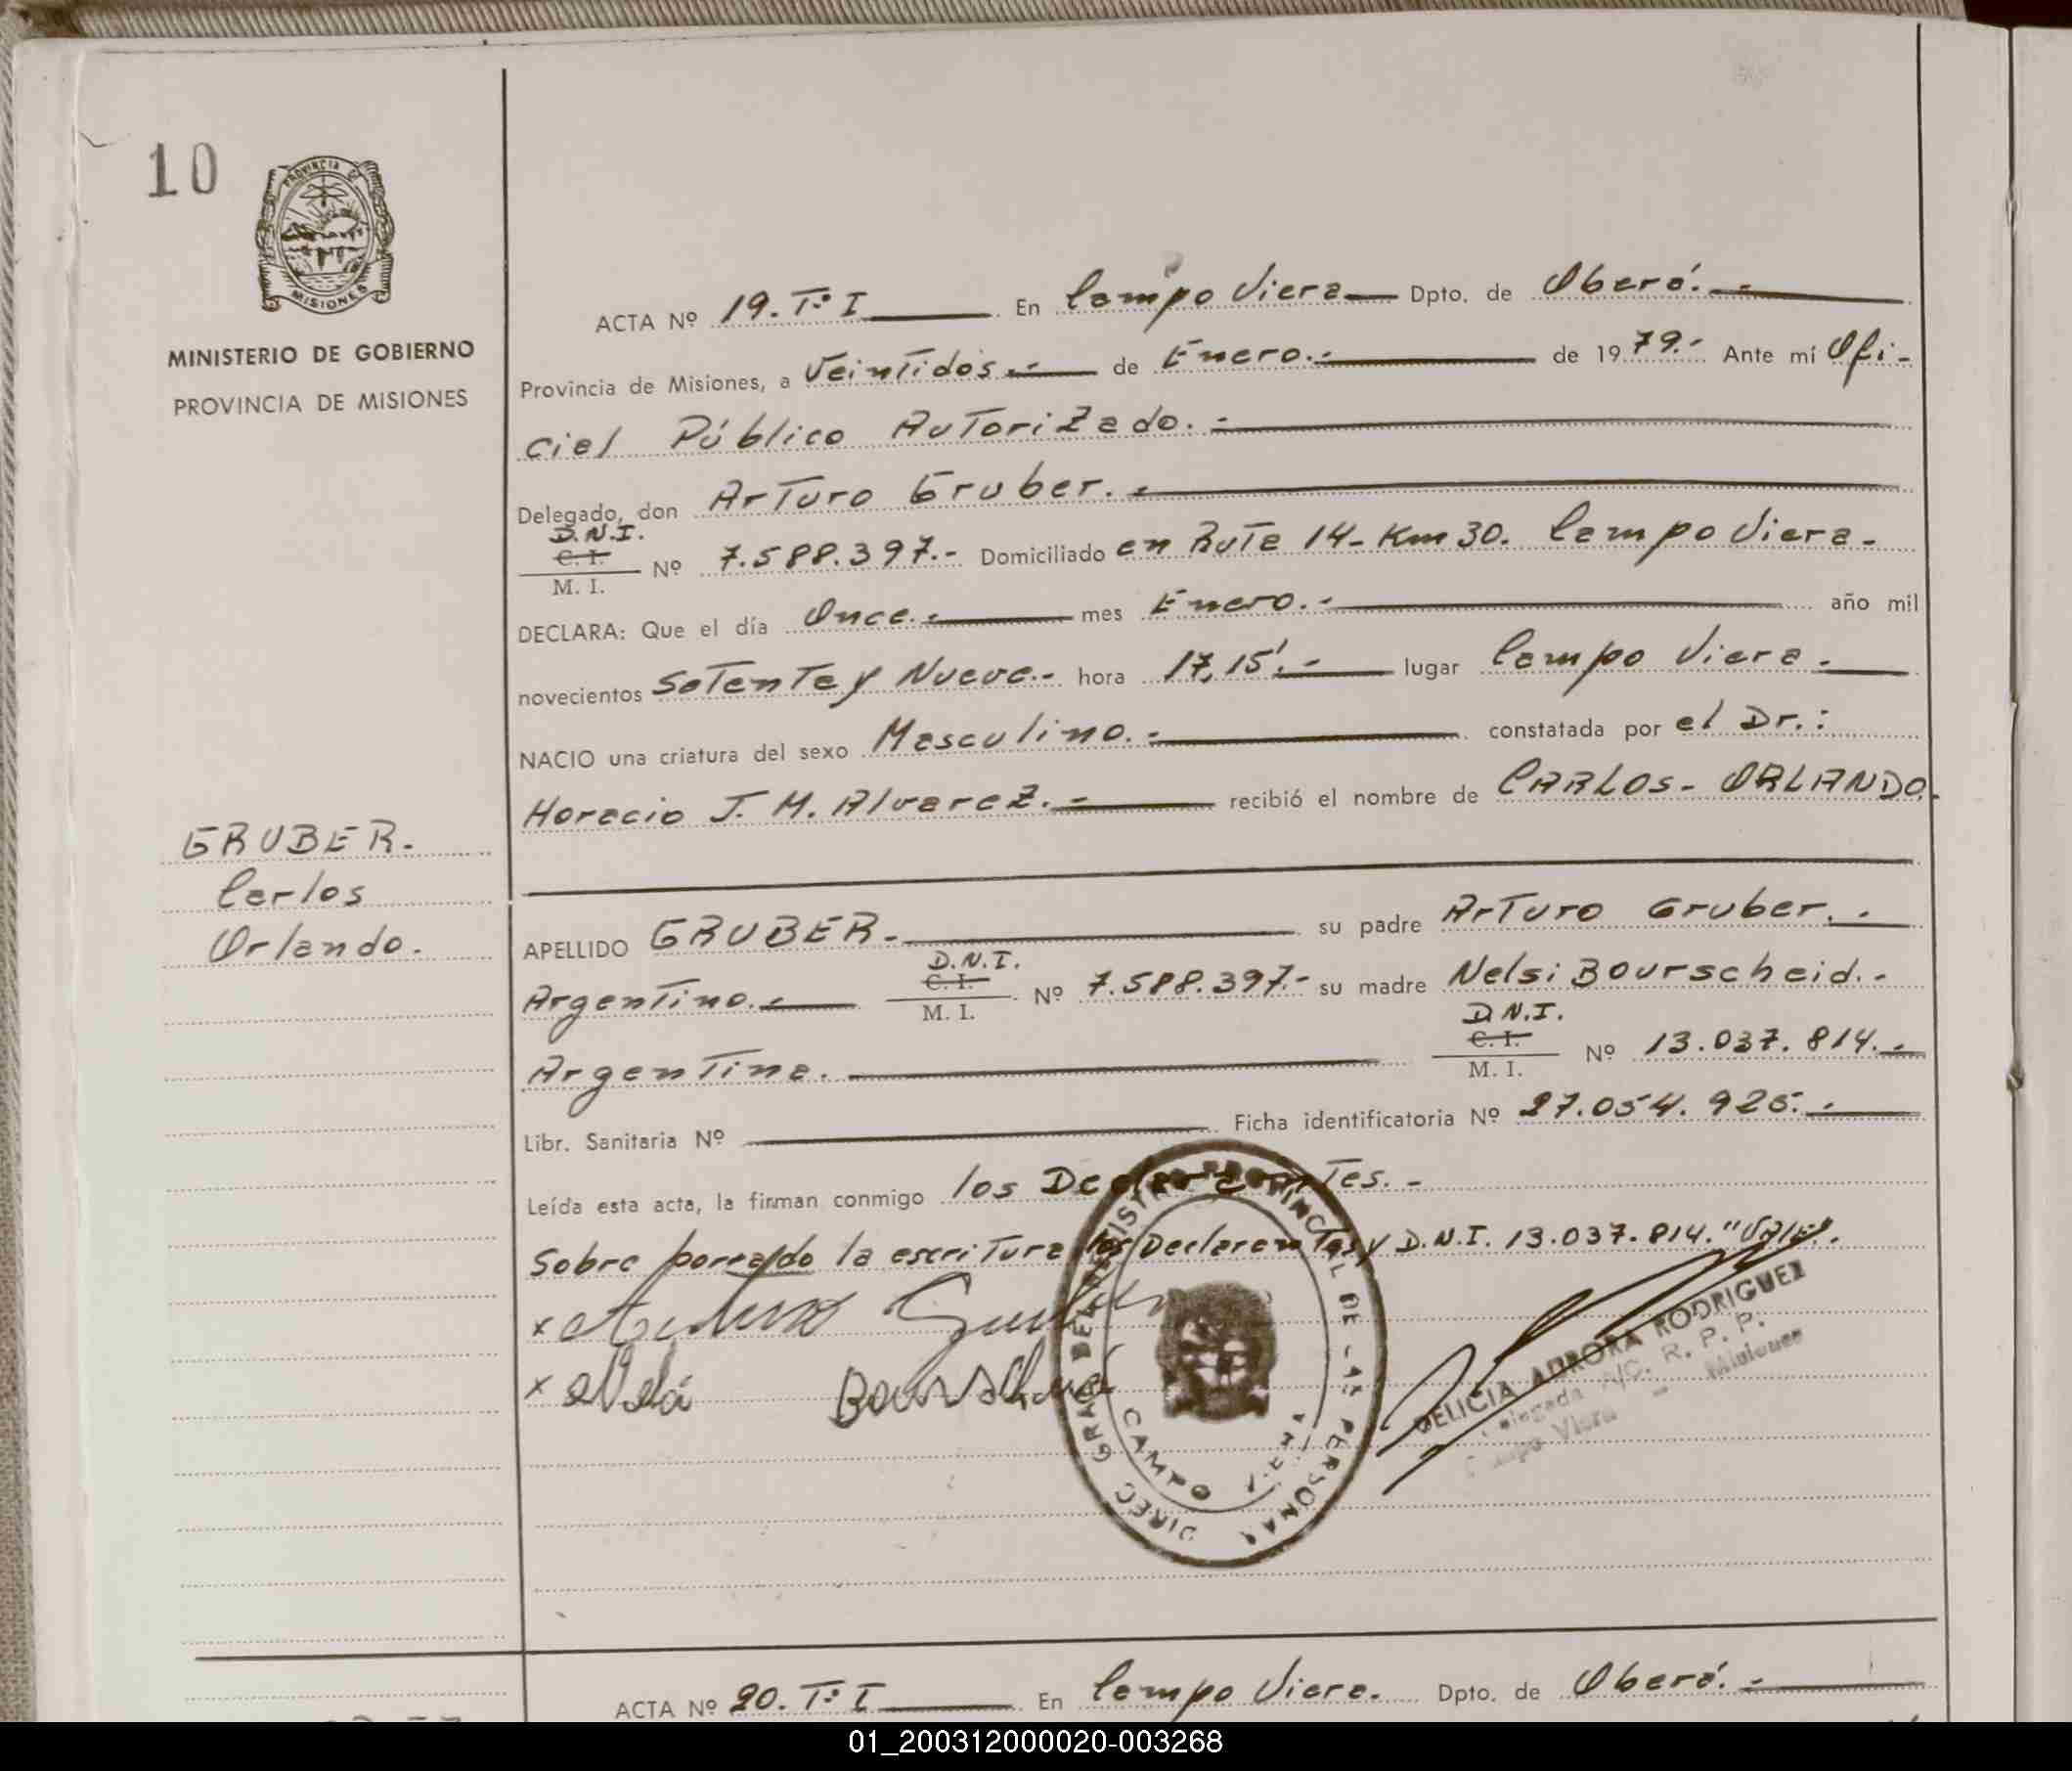 10
PROVINCIA DE
MISIONES
MINISTERIO DE GOBIERNO
PROVINCIA DE MISIONES
GRUBER.
Carlos
Orlando.
ACTA Nº 19. Tº I En Campo Viera Dpto. de Oberá.-
Provincia de Misiones, a Veintidós.- de Enero.- de 1979.- Ante mí Ofi-
cial Público Autorizado.-
Delegado, don Arturo Gruber.-
D.N.I.
C. I.
M. I.
Nº 7.588.397.- Domiciliado en Ruta 14- Km 30. Campo Viera-
DECLARA: Que el día Once.- mes Enero.- año mil
novecientos Setenta y Nueve.- hora 17,15'.- lugar Campo Viera.-
NACIO una criatura del sexo Masculino.- constatada por el Dr.:
Horacio J. M. Alvarez.- recibió el nombre de CARLOS- ORLANDO.
APELLIDO GRUBER.- su padre Arturo Gruber.-
Argentino.- D.N.I. C. I. M. I. Nº 7.588.397.- su madre Nelsi Bourscheid.-
Argentina.- D.N.I. C. I. M. I. Nº 13.037.814.-
Libr. Sanitaria Nº Ficha identificatoria Nº 27.054.925.-
Leída esta acta, la firman conmigo los Declarantes.-
Sobre borrado la escritura los Declarantes y D.N.I. 13.037.814. "Vale".
x Arturo Gruber
x
DIREC GRAL DEL REGISTRO PROVINCIAL DE LAS PERSONAS
CAMPO VIERA
DELICIA AURORA RODRIGUEZ
Delegada A/C. R. P. P.
Campo Viera - Misiones
ACTA Nº 20. Tº I En Campo Viera. Dpto. de Oberá.-
01_200312000020-003268